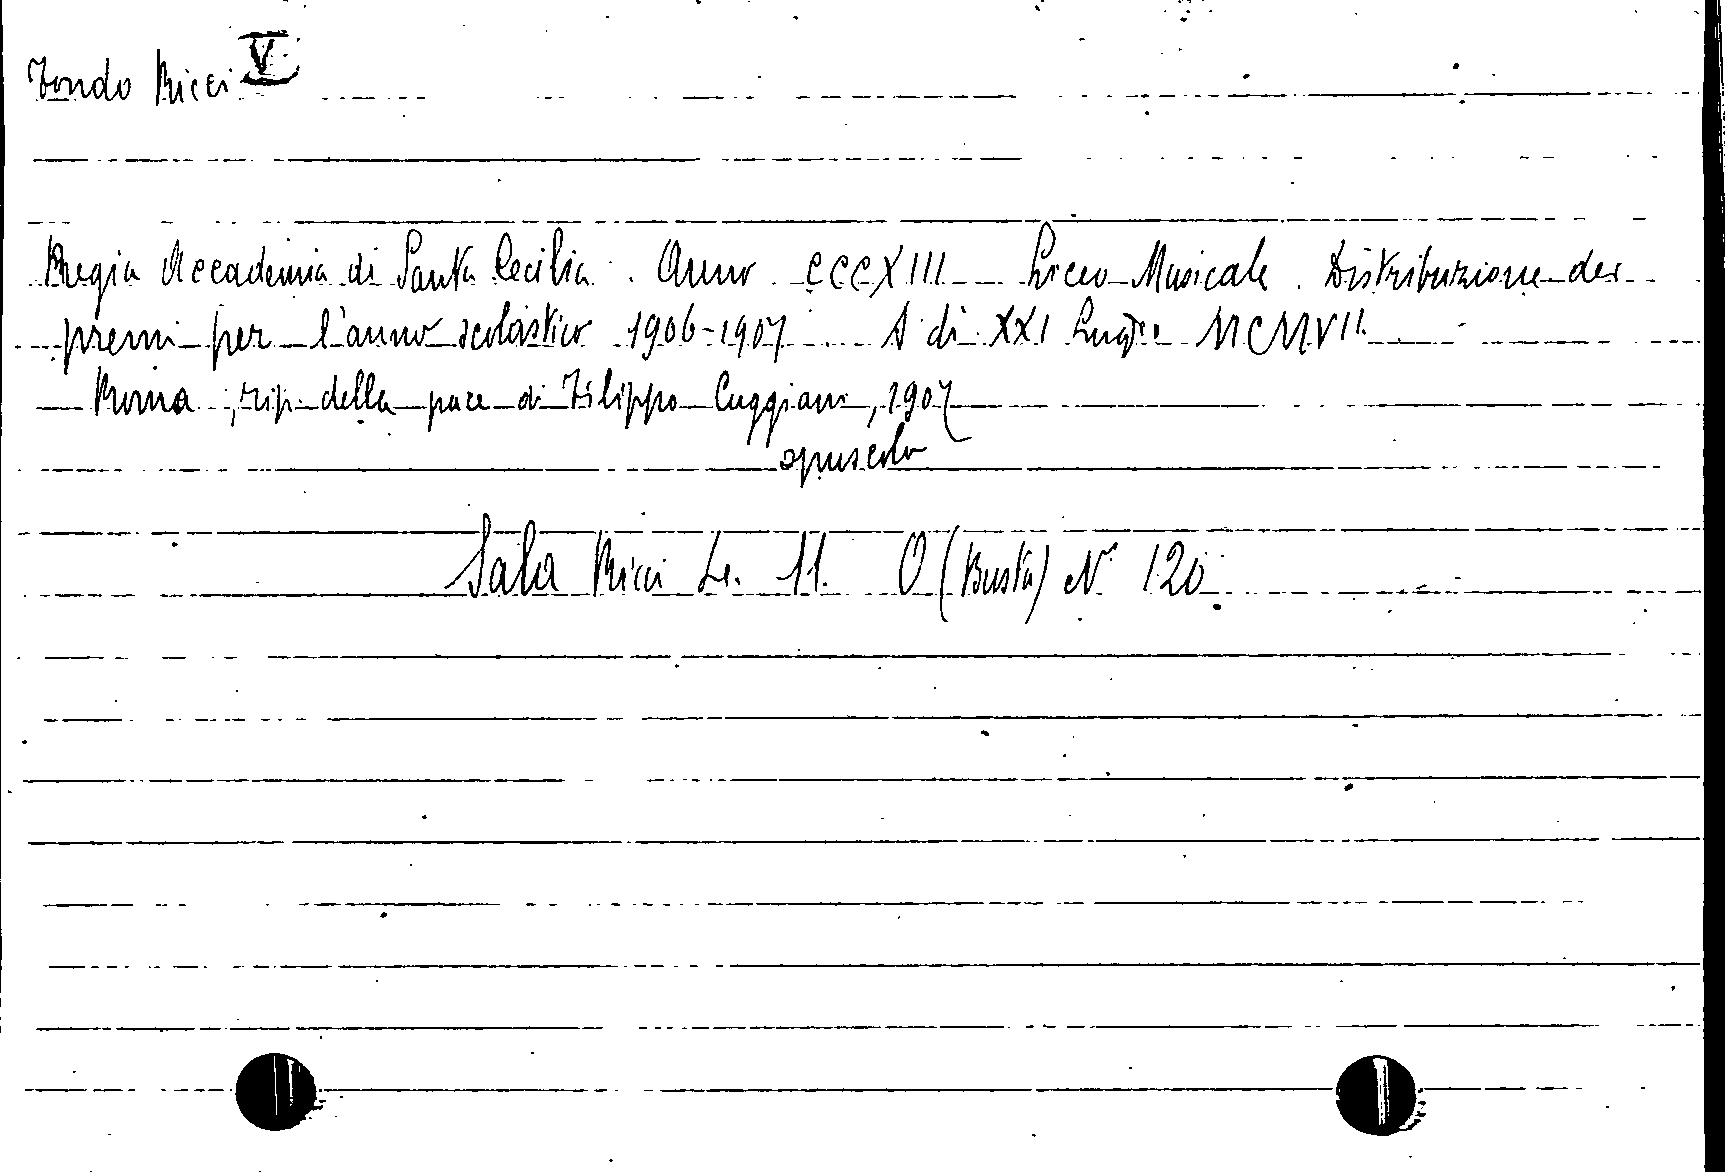 Fondo Ricci V
Regia Accademia di Santa Cecilia. Anno CCCXIII Liceo Musicale. Distribuzione dei
premi per l'anno scolastico 1906-1907 A di XXI Luglio MCMVII
Roma, tip. della pace di Filippo Cuggiani, 1907
opuscolo
Sala Ricci Le. 11. O (Busta) N° 120